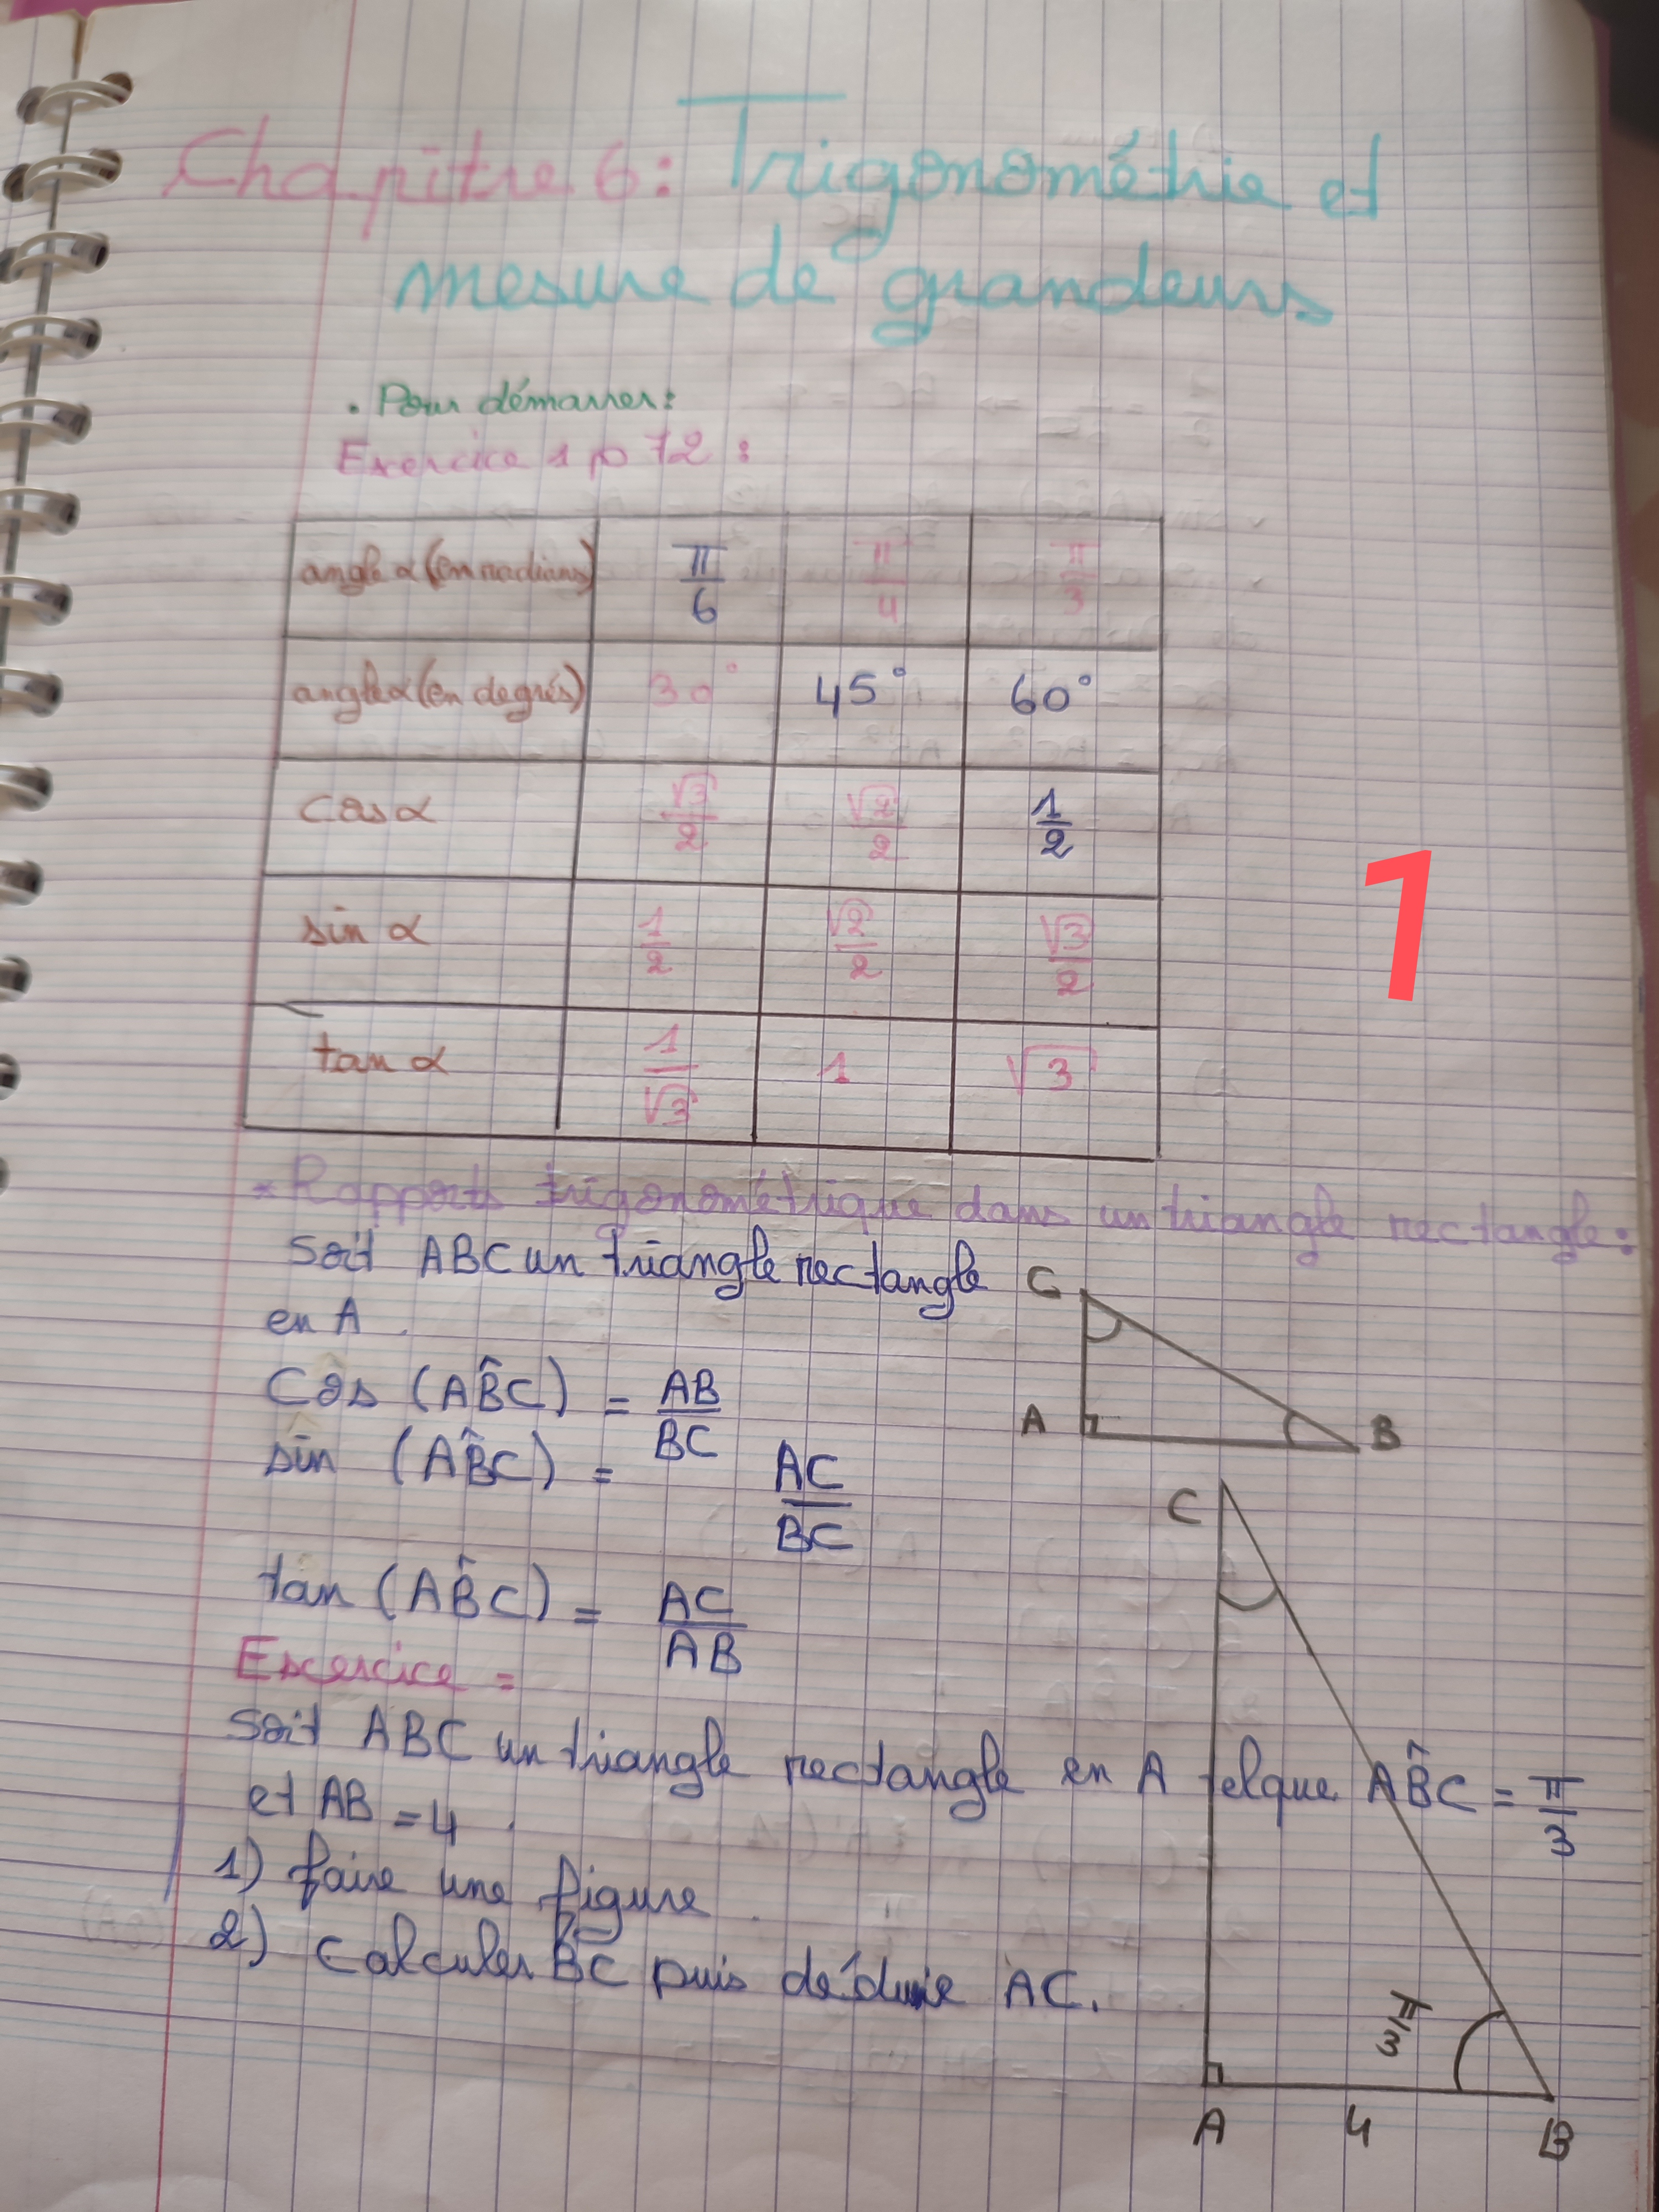 Chapitre 6: Trigonométrie et
mesure de grandeurs
• Pour démarrer:
Exercice 1 p 72 :
angle α (en radians) π/6 π/4 π/3
angle α (en degrés) 30° 45° 60°
cos α √3/2 √2/2 1/2
sin α 1/2 √2/2 √3/2
tan α 1/√3 1 √3
1
* Rapports trigonométrique dans un triangle rectangle:
Soit ABC un triangle rectangle
en A.
C
A
B
Cos (AB̂C) = AB/BC
sin (AB̂C) = AC/BC
tan (AB̂C) = AC/AB
Exercice =
Soit ABC un triangle rectangle en A telque AB̂C = π/3
et AB = 4.
1) faire une figure.
2) Calculer BC puis déduire AC.
C
π/3
A
4
B